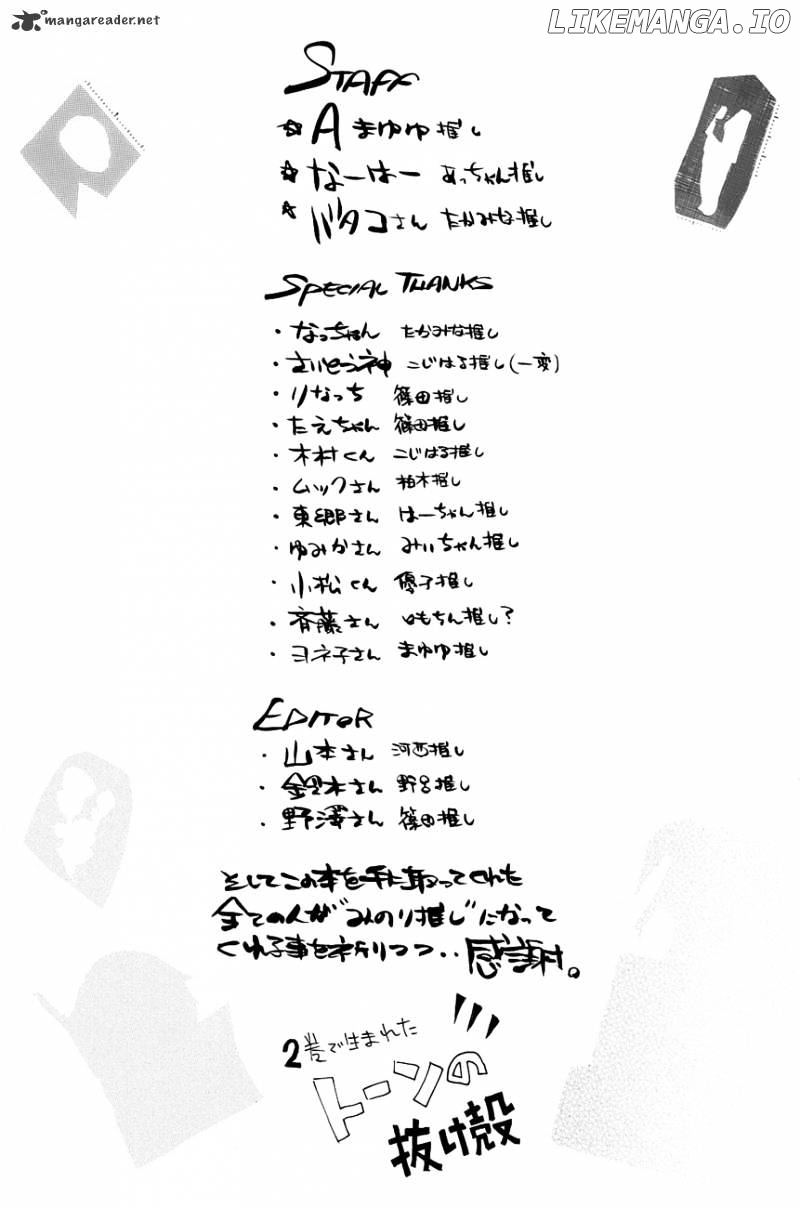 mangareader.net
LIKEMANGA.IO
STAFF
☆ A まゆゆ推し
☆ なーはー あっちゃん推し
☆ バタコさん たかみな推し
SPECIAL THANKS
・なっちゃん たかみな推し
・さいとう神 こじはる推し(一変)
・りなっち 篠田推し
・たえちゃん 篠田推し
・木村くん こじはる推し
・ムックさん 柏木推し
・東郷さん はーちゃん推し
・ゆみかさん みぃちゃん推し
・小松くん 優子推し
・斉藤さん ともちん推し?
・ヨネ子さん まゆゆ推し
EDITOR
・山本さん 河西推し
・鈴木さん 野呂推し
・野澤さん 篠田推し
そしてこの本を手に取ってくれた
全ての人が"みのり推し"になって
くれる事を祈りつつ・・感謝。
2巻で生まれた
トーンの
抜け殻